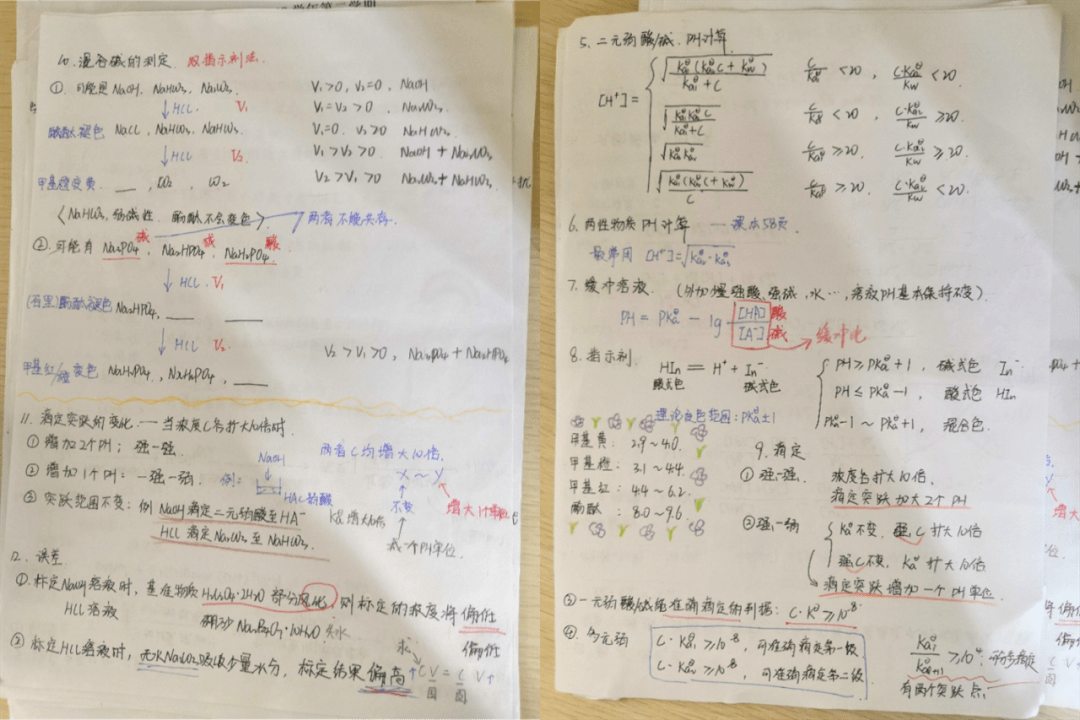 10. 混合碱的测定 双指示剂法.
①. 可能是 NaOH, NaHCO₃, Na₂CO₃.
V₁>0, V₂=0, NaOH
↓HCl V₁
V₁=V₂>0, Na₂CO₃.
酚酞褪色 NaCl, NaHCO₃, NaHCO₃
V₁=0. V₂>0 NaHCO₃.
↓HCl V₂.
V₁>V₂>0 NaOH + Na₂CO₃
甲基橙变黄. __, CO₂, CO₂
V₂>V₁>0 Na₂CO₃ + NaHCO₃.
<NaHCO₃, 弱碱性. 酚酞不会变色> 两者不能共存.
②. 可能有 Na₃PO₄碱, Na₂HPO₄碱, NaH₂PO₄酸.
↓HCl. V₁
酚酞褪色 Na₂HPO₄, __ __
↓HCl V₂
V₂>V₁>0, Na₃PO₄ + Na₂HPO₄
甲基红/橙变色 NaH₂PO₄, NaH₂PO₄, __
11. 滴定突跃的变化. — 当浓度C各扩大10倍时.
① 增加2个PH; 强-强. 两者C均增大10倍.
② 增加1个PH: 一强一弱. 例: NaOH HAc弱酸 X~Y
不变 增大1个单位
③ 突跃范围不变: 例 NaOH滴定二元弱酸至HA⁻
Ka增大10倍
HCl 滴定 Na₂CO₃ 至 NaHCO₃.
减一个PH单位.
12. 误差
①. 标定NaOH溶液时, 基准物质H₂C₂O₄·2H₂O 部分风化, 则标定的浓度将偏低
HCl溶液 硼砂 Na₂B₄O₇·10H₂O 失水 偏低
② 标定HCl溶液时, 无水Na₂CO₃吸收少量水分, 标定结果偏高
求 ↑CV=CV↑
固 固
5. 二元弱酸/碱. PH计算
[H⁺]=
√(Ka₁(Ka₁C+Kw)/(Ka₁+C)) C/Ka₁<20, C·Ka₁/Kw<20
√(Ka₁Ka₂C/(Ka₁+C)) C/Ka₁<20, C·Ka₂/Kw≥20.
√(Ka₁Ka₂) C/Ka₁≥20, C·Ka₂/Kw≥20.
√(Ka₁(Ka₂C+Kw)/C) C/Ka₁≥20, C·Ka₂/Kw<20.
6. 两性物质PH计算 — 课本58页.
最常用 [H⁺]=√(Ka₁·Ka₂)
7. 缓冲溶液. (外加少量强酸、强碱, 水…, 溶液PH基本保持不变).
PH = PKa − lg [HA]酸/[A⁻]碱 → 缓冲比
8. 指示剂. HIn ═ H⁺ + In⁻
酸式色 碱式色
PH≥PKa+1, 碱式色 In⁻
PH≤PKa−1, 酸式色 HIn
PKa−1~PKa+1, 混合色.
理论变色范围: PKa±1
甲基黄: 2.9~4.0.
甲基橙: 3.1~4.4.
甲基红: 4.4~6.2.
酚酞: 8.0~9.6.
9. 滴定
① 强-强. 浓度各扩大10倍
滴定突跃加大2个PH
② 强-弱 Ka不变, C扩大10倍
强C不变, Ka扩大10倍
滴定突跃增加一个PH单位.
③ 一元弱酸/碱能准确滴定的判据: C·K≥10⁻⁸
④. 多元弱 C·Ka₁≥10⁻⁸, 可准确滴定第一级
C·Ka₂≥10⁻⁸, 可准确滴定第二级
Kaₙ/Kaₙ₊₁≥10⁴, 可分步滴定
有两个突跃点.